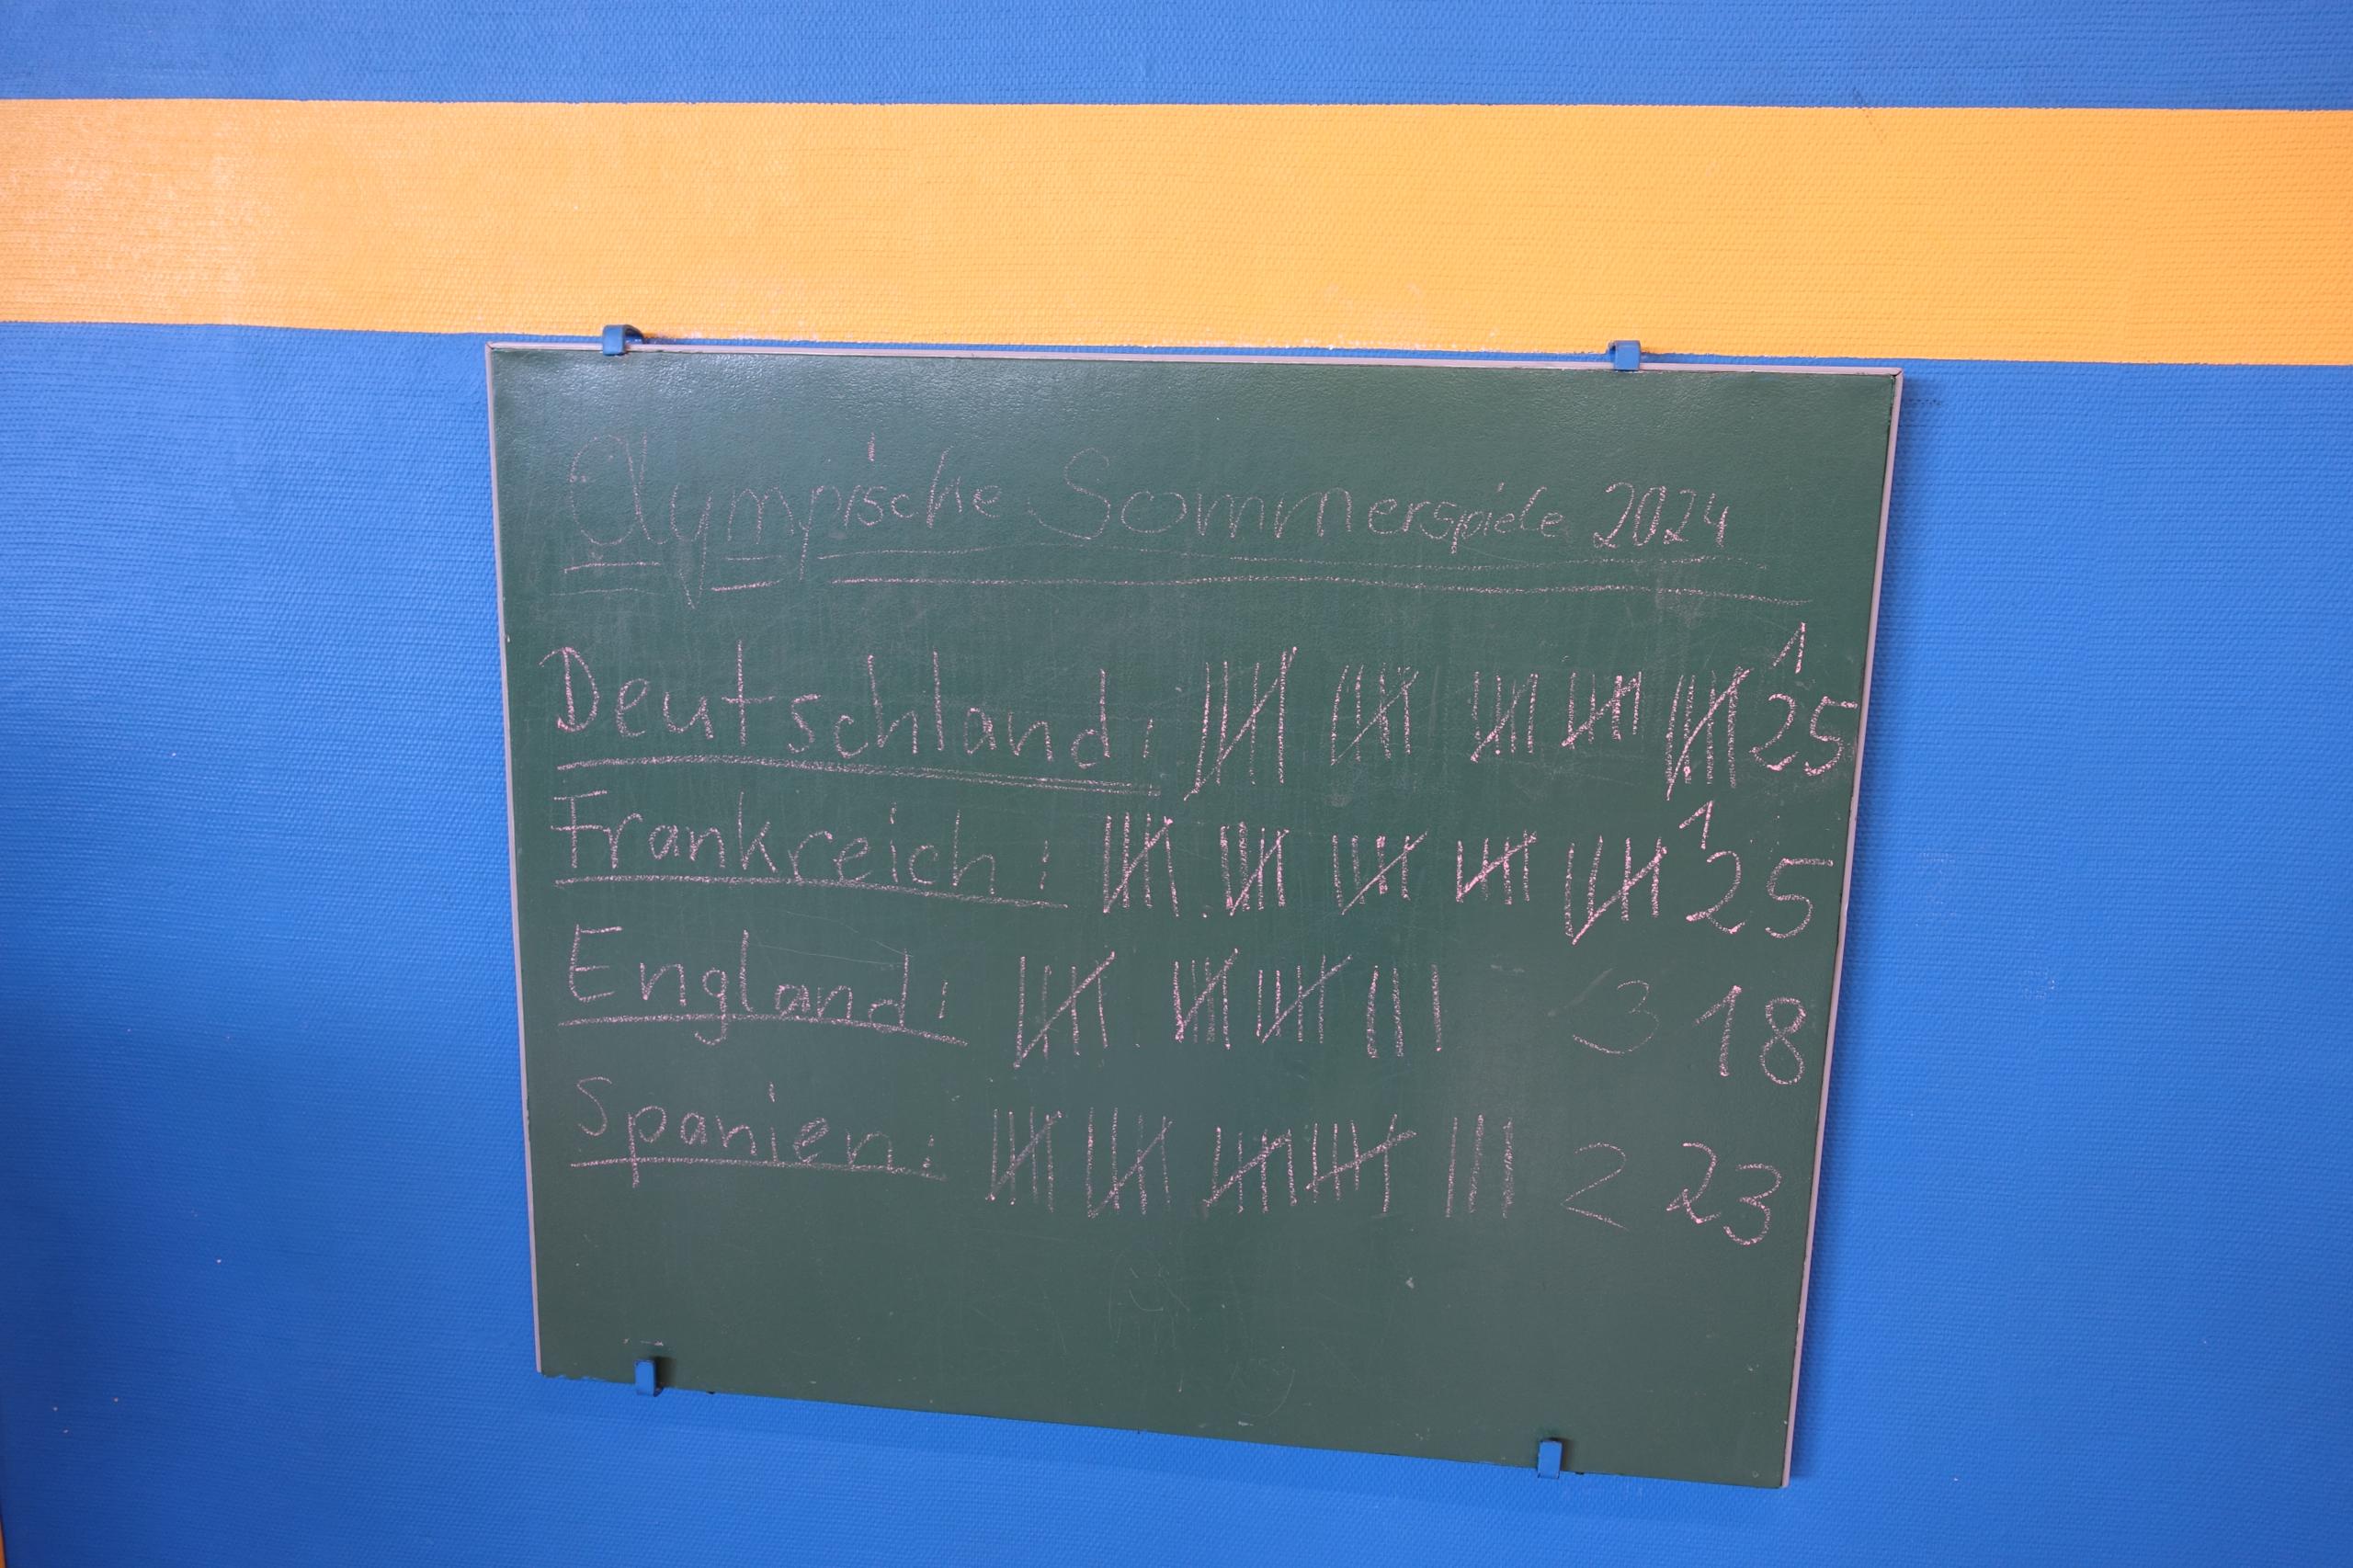 Olympische Sommerspiele 2024
Deutschland: 1 25
Frankreich: 1 25
England: 3 18
Spanien: 2 23